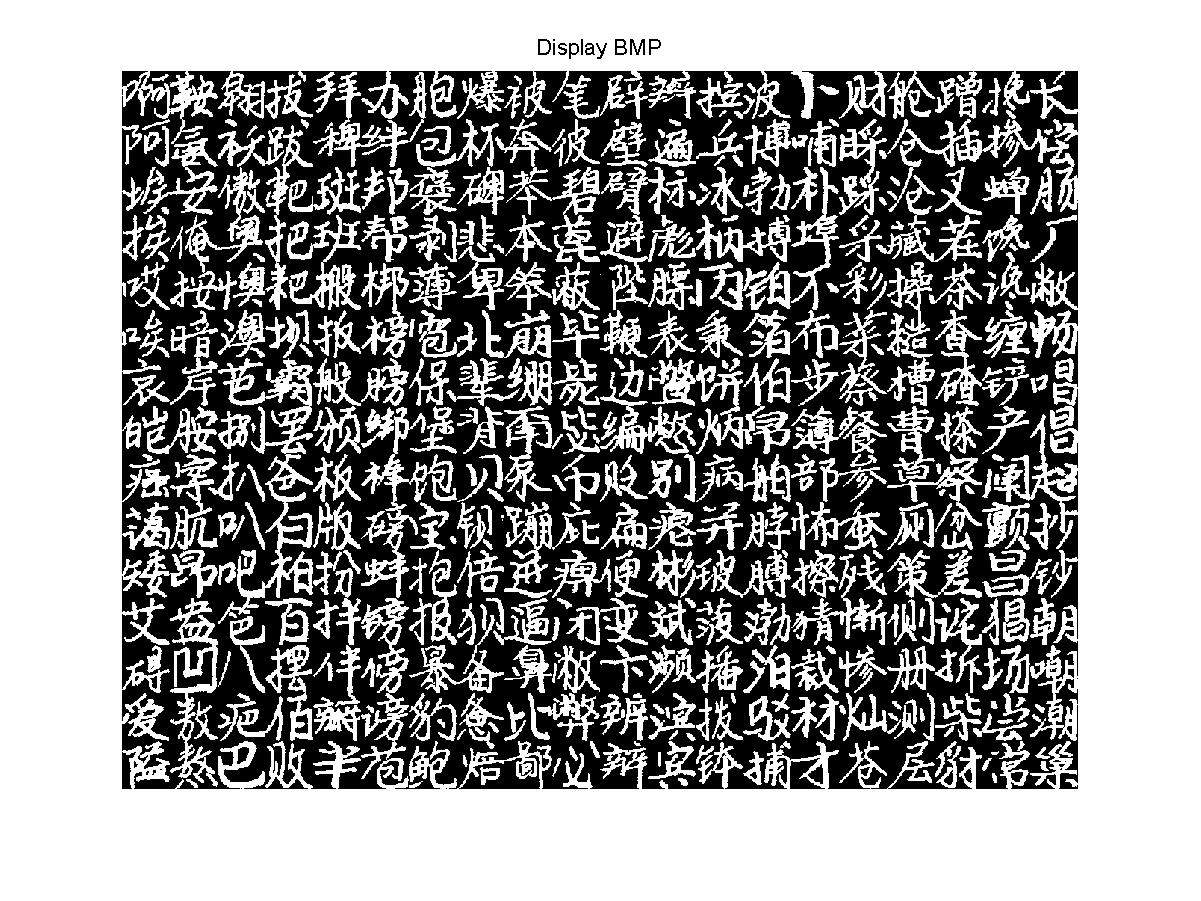 啊鞍翱拔拜办胞爆被笔辟辫摈波卜财舱蹭搀长
阿氨袄跋稗绊包杯奔彼壁遍兵博哺睬仓插掺偿
埃安傲靶斑邦褒碑苯碧臂标冰勃补踩沧叉蝉肠
挨俺奥把班帮剥悲本蓖避彪柄搏埠采藏茬馋厂
哎按懊耙搬梆薄卑笨蔽陛膘丙铂不彩操茶谗敞
唉暗澳坝扳榜雹北崩毕鞭表秉箔布菜糙查缠畅
哀岸芭霸般膀保辈绷毙边鳖饼伯步蔡槽碴铲唱
皑胺捌罢颁绑堡背甭毖编憋炳帛簿餐曹搽产倡
癌案扒爸板棒饱贝泵币贬别病舶部参草察阐超
蔼肮叭白版磅宝钡蹦庇扁瘪并脖怖蚕厕岔颤抄
矮昂吧柏扮蚌抱倍迸痹便彬玻膊擦残策差昌钞
艾盎笆百拌镑报狈逼闭变斌菠渤猜惭侧诧猖朝
碍凹八摆伴傍暴备鼻敝卞濒播泊裁惨册拆场嘲
爱敖疤佰瓣谤豹惫比弊辨滨拨驳材灿测柴尝潮
隘熬巴败半苞鲍焙鄙必辩宾钵捕才苍层豺常巢